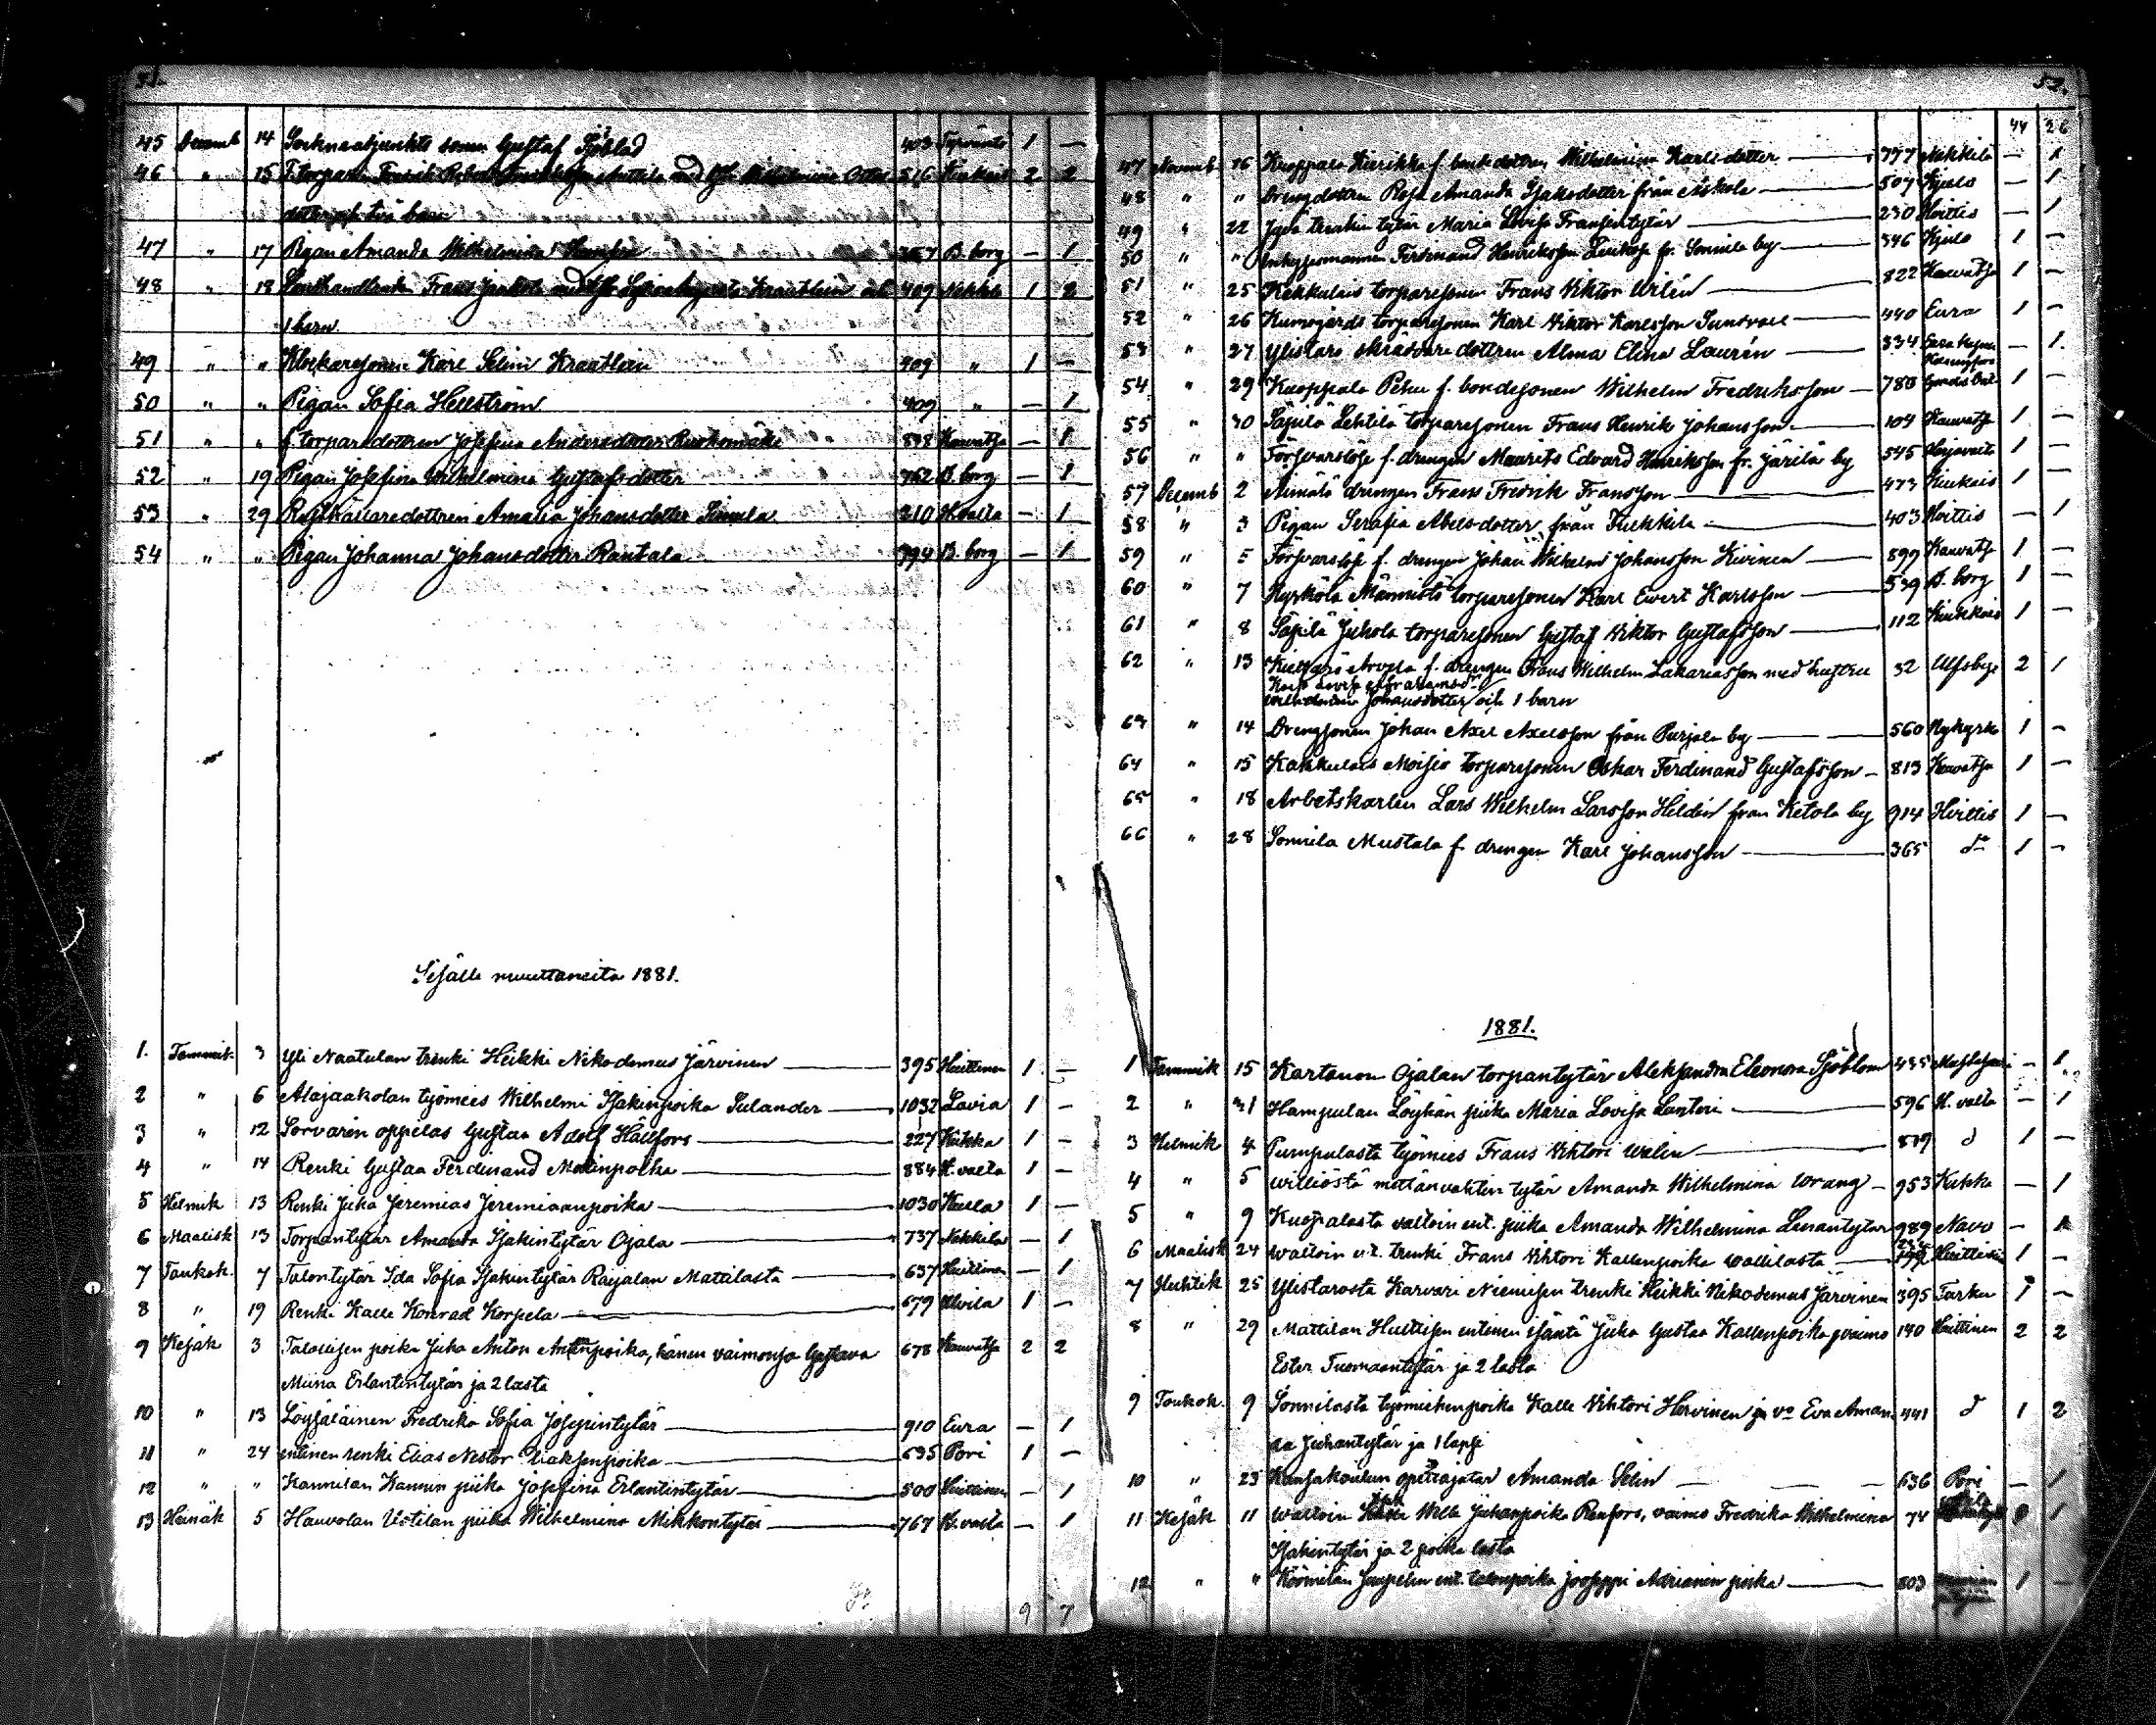 51.
45 Decemb 14 Sockneadjunkts sonen Gustaf Sjöblad 403 Tyrväntö 1 —
46 " 15 F. torparen Fredrik 516 Kiukais 2 2
dotter och två barn
47 " 17 Pigan Amanda Wilhelmina 357 B.borg — 1
48 " 18 Frans med hstr Sofia Augusta Kraatlein och 409 Nakkila 1 2
1 barn
49 " " Klockaresonen Karl Selim Kraatlein 409 " 1 —
50 " " Pigan Sofia Hellström 409 " — 1
51 " " f. torparedottren Josefina Andersdotter Ruohomäki 838 Kauvatsa — 1
52 " 19 Pigan Josefina Wilhelmina Gustafsdotter 762 B.borg — 1
53 " 29 Rusthållaredottren Amalia Johansdotter 210 — 1
54 " " Pigan Johanna Johansdotter Rantala 794 B.borg — 1
Sisälle muuttaneita 1881.
1. Tammik. 3 Yli Naatulan trenki Heikki Nikodemus Järvinen 395 Huittinen 1 —
2 " 6 Alajaakolan työmies Wilhelmi Isakinpoika Sulander 1032 Lavia 1 —
3 " 12 Sorvarin oppilas Gustaa Adolf Hällfors 227 Kiikka 1 —
4 " 14 Renki Gustaa Ferdinand Matinpoika 884 K.valta 1 —
5 Helmik 13 Renki Juha Jeremias Jeremiaanpoika 1030 Kulla 1 —
6 Maalisk 13 Torpantytär Amanda Isakintytär Ojala 737 Nakkila — 1
7 Toukok. 7 Talontytär Ida Sofia Isakintytär Raijalan Mattilasta 637 Huittinen — 1
8 " 19 Renki Kalle Konrad Korpela 679 Ulvila 1 —
9 Kesäk 3 Talollisen poika Juha Anton Antinpoika, hänen vaimonsa Gustava 678 Kauvatsa 2 2
Miina Erlantintytär ja 2 lasta
10 " 13 Löysäläinen Fredrika Sofia Josepintytär 910 Eura — 1
11 " 24 entinen renki Elias Nestor Isaksenpoika 635 Pori 1 —
12 " " Kannilan Kannin piika Josefina Erlantintytär 500 Huittinen — 1
13 Heinäk 5 Hauvolan Uotilan piika Wilhelmina Mikkontytär 767 K.valta — 1
9 7
52.
44 26
47 Novemb. 16 Kuoppala Kierikka f. bondedottren Wilhelmina Karlsdotter 777 Nakkila — 1
48 " " Drengdottren Rosa Amanda Isaksdotter från Äskola 507 Kjulo — 1
49 " 22 tytär Maria Lovisa Fransintytär 230 Hvittis — 1
50 " " Inhysesmannen Ferdinand Henriksson fr. Sonnila by 346 Kjulo 1 —
51 " 25 Kakkulais torparesonen Frans Viktor Urlin 822 Kauvatsa 1 —
52 " 26 Kumogårds torparesonen Karl Viktor Karlsson Sundvall 440 Eura 1 —
53 " 27 Ylistaro skräddaredottren Alma Elina Laurén 334 — 1.
54 " 29 Kuoppala Pehu f. bondesonen Wilhelm Fredriksson 780 1 —
55 " 30 Säpilä Lehtilä torparesonen Frans Henrik Johansson 104 Kauvatsa 1 —
56 " " Försvarslöse f. drengen Maurits Edvard Henriksson fr. Järilä by 545 Harjavalta 1 —
57 Decemb 2 Aimälä drengen Frans Fredrik Fransson 473 Kiukais 1 —
58 " 3 Pigan Serafia Abelsdotter från Tulkkila 403 Hvittis — 1
59 " 5 Försvarslöse f. drengen Johan Wilhelm Johansson Kivinen 899 Kauvatsa 1 —
60 " 7 Kyrkölä Männistö torparesonen Karl Evert Karlsson 539 B.borg 1 —
61 " 8 Säpilä Juhola torparesonen Gustaf Viktor Gustafsson 112 Kiukkais 1 —
62 " 13 Arvela f. drengen Frans Wilhelm Sakariasson med hustru 32 Ulfsby 2 1
Wilhelmina Johansdotter och 1 barn
63 " 14 Drengsonen Johan Axel Axelsson från Purjala by 560 Nykyrko 1 —
64 " 15 Kakkulais Moisio torparesonen Oskar Ferdinand Gustafsson 813 Kauvatsa 1 —
65 " 18 Arbetskarlen Lars Wilhelm Larsson Hildén från Ketola by 914 Hvittis 1 —
66 " 28 Sonnila Mustala f. drengen Karl Johansson 365 do 1 —
1881.
1 Tammik 15 Kartanon Ojalan torpantytär Aleksandra Eleonora Sjöblom 435 — 1
2 " 21 Hampulan Löyhän piika Maria Lovisa Lantori 596 K.valta — 1
3 Helmik 4 Purupulasta työmies Frans Vihtori Welin 879 d 1 —
4 " 5 Williöstä mettänvahten tytär Amanda Wilhelmina Wrang 953 Kiikka — 1
5 " 9 Kuoppalasta valloin ent. piika Amanda Wilhelmina Linantytär 989 Navo — 1
6 Maalisk 24 Walloin ent. trenki Frans Vihtori Kallenpoika Wallilasta Huittisiin 1 —
7 Huhtik 25 Ylistarosta Karvari Niemisen trenki Heikki Nikodemus Järvinen 395 Turku 1 —
8 " 29 Mattilan Huttisen entinen isäntä Juha Gustaa Kallenpoika vaimo 140 Huittinen 2 2
Ester Tuomaantytär ja 2 lasta
9 Toukok. 9 Sonnilasta työmiehenpoika Kalle Vihtori Hervinen ja vo Eva Aman- 441 d 1 2
da Juhantytär ja 1 lapsi
10 " 23 Kansakoulun opettajatar Amanda Selin 636 Pori — 1
11 Kesäk 11 Walloin Wille Juhanpoika Renfors, vaimo Fredrika Wilhelmiina 74 1
Isakintytär ja 2 poika lasta
12 " " Köömilän Juupelin ent. talonpoika Jooseppi Adrianin poika 803 1 —